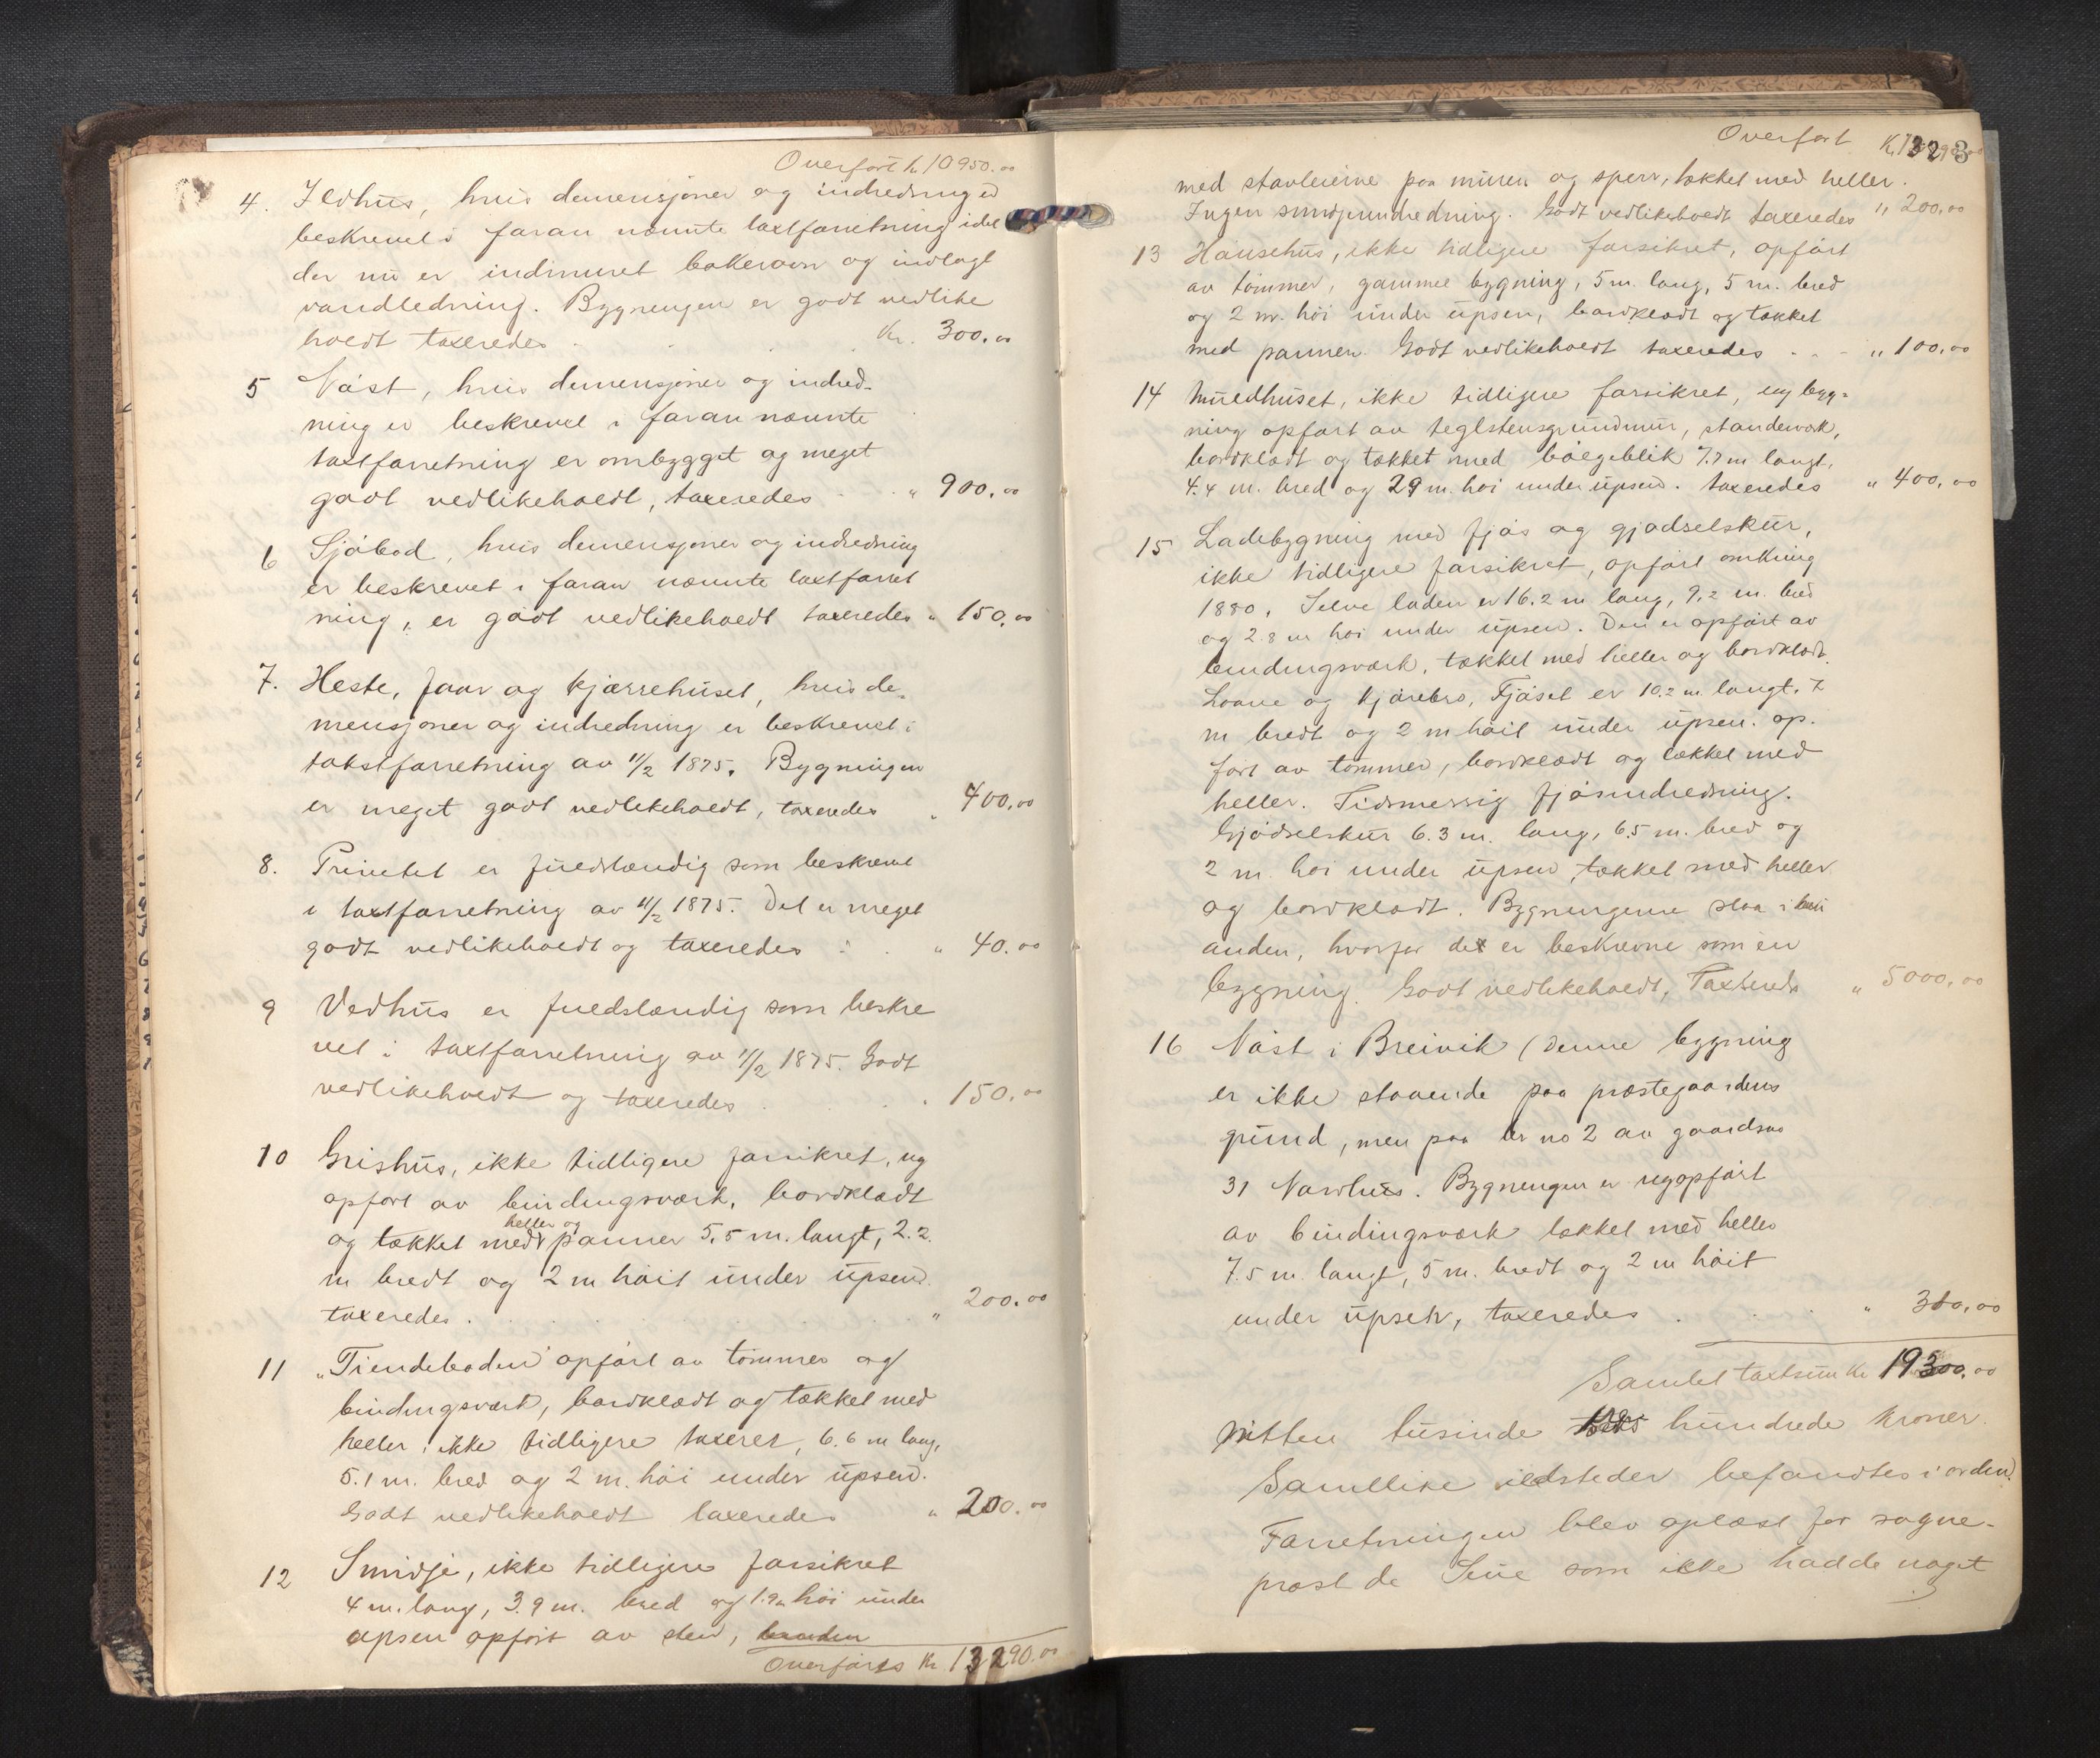 Overført Kr 10950.00
4. Ildhus, hvis demensjoner og indredning er
beskrevet i foran nævnte taxtforretning idet
der nu er indmuret bakerovn og indlagt
vandledning. Bygningen er godt vedlike
holdt taxeredes . . . Kr. 300.00
5 Nøst, hvis demensjoner og indred-
ning er beskrevet i foran nævnte
taxtforretning er ombygget og meget
godt vedlikeholdt, taxeredes . . " 900.00
6 Sjøbod, hvis demensjoner og indredning
er beskrevet i foran nævnte taxtforret
ning, er godt vedlikeholdt taxeredes " 150.00
7. Heste, faar og kjærrehuset, hvis de-
mensjoner og indredning er beskrevet i
takstforretning av 11/2 1875. Bygningen
er meget godt vedlikeholdt, taxeredes " 400.00
8. Privetet er fuldstændig som beskrevet
i taxtforretning av 11/2 1875. Det er meget
godt vedlikeholdt og taxeredes . . " 40.00
9 Vedhus er fuldstændig som beskre
vet i taxtforretning av 11/2 1875. Godt
vedlikeholdt og taxeredes . . . 150.00
10 Grishus, ikke tidligere forsikret, ny
opført av bindingsværk, bordklædt
og tækket med heller og panner 5.5 m. langt, 2.2
m bredt og 2 m høit under upsen.
taxeredes . . . " 200.00
11 "Tiendeboden" opført av tømmer og
bindingsværk, bordklædt og tækket med
heller, ikke tidligere taxeret, 6.6 m lang,
5.1 m. bred og 2 m. høi under upsen.
Godt vedlikeholdt taxeredes " 200.00
12 Smidje, ikke tidligere forsikret
4 m. lang, 3.9 m. bred og 1.9 m høi under
upsen opført av sten,
Overføres Kr 13290.00
Overført Kr. 13290.00
3
med stavleierne paa muren og sperr, tækket med heller.
Ingen smidjeindredning. Godt vedlikeholdt taxeredes " 200.00
13 Hønsehus, ikke tidligere forsikret, opført
av tømmer, gammel bygning, 5 m. lang, 5 m. bred
og 2 m. høi under upsen, bordklædt og tækket
med panner. Godt vedlikeholdt taxeredes . . . " 100.00
14 huset, ikke tidligere forsikret, ny byg-
ning opført av teglstensgrundmur, standerværk,
bordklædt og tækket med bølgeblik 7.7 m langt,
4.4 m. bred og 2.9 m. høi under upsen. taxeredes " 400.00
15 Ladebygning med fjøs og gjødselskur,
ikke tidligere forsikret, opført omkring
1880. Selve laden er 16.2 m lang, 9.2 m. bred
og 2.8 m høi under upsen. Den er opført av
bindingsværk, tækket med heller og bordklædt.
Loave og kjørebro, Fjøset er 10.2 m. langt, 7
m bredt og 2 m høit under upsen. op-
ført av tømmer, bordklædt og tækket med
heller. Tidsmessig fjøsindredning.
Gjødselskur 6.3 m. lang, 6.5 m. bred og
2 m. høi under upsen, tækket med heller
og bordklædt. Bygningerne staa i hin
anden, hvorfor de er beskrevne som en
bygning. Godt vedlikeholdt, Taxeredes " 5000.00
16 Nøst i Breivik (Denne bygning
er ikke staaende paa præstegaardens
grund, men paa br no 2 av gaardsno
31 Navrhus. Bygningen er nyopført
av bindingsværk tækket med heller
7.5 m. langt, 5 m. bredt og 2 m høit
under upsen, taxeredes . . . " 300.00
Samlet taxtsum Kr 19300.00
Nitten tusinde hundrede kroner.
Samtlike ildsteder befandtes i orden.
Forretningen blev oplæst for sogne-
prest de Seue som ikke hadde noget